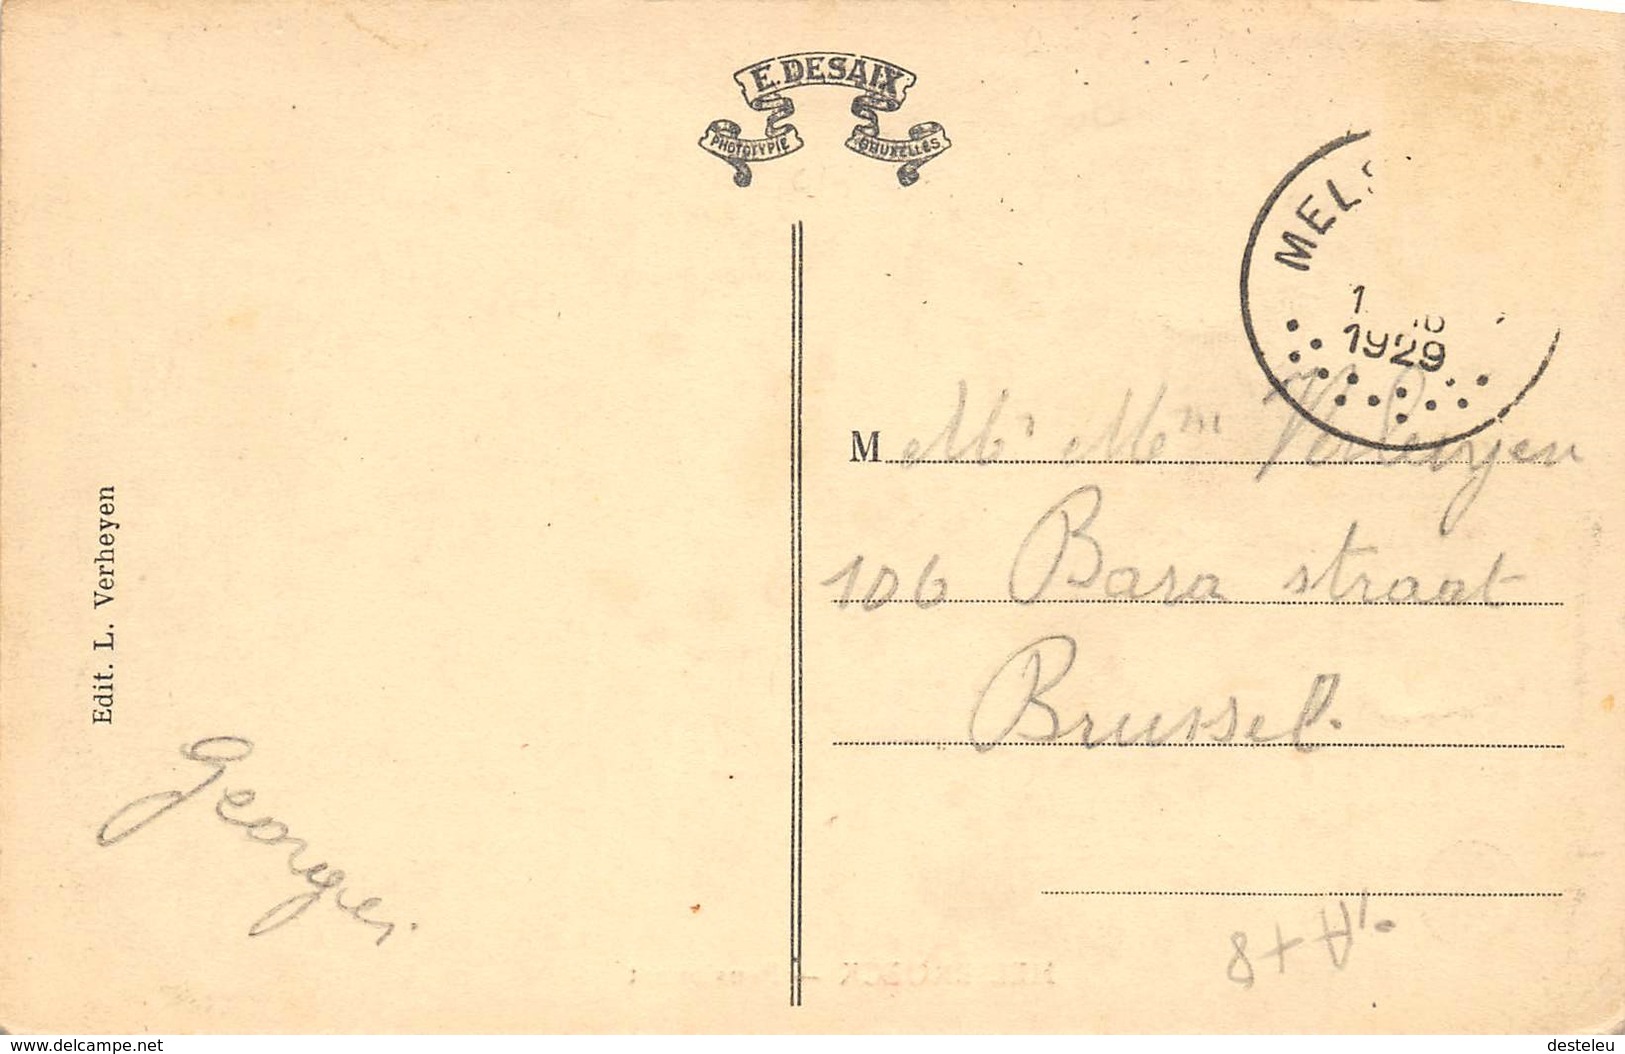 E. DESAIX
PHOTOTYPIE
BRUXELLES
MELS
1
1929
M Mr Mm Verheyen
106 Bara straat
Brussel.
Edit. L. Verheyen
Georges.
www.delcampe.net
desteleu